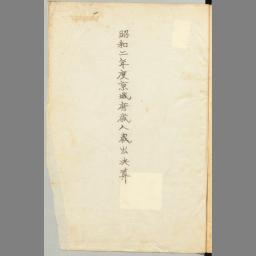 昭和二年度京城府歳入歳出決算